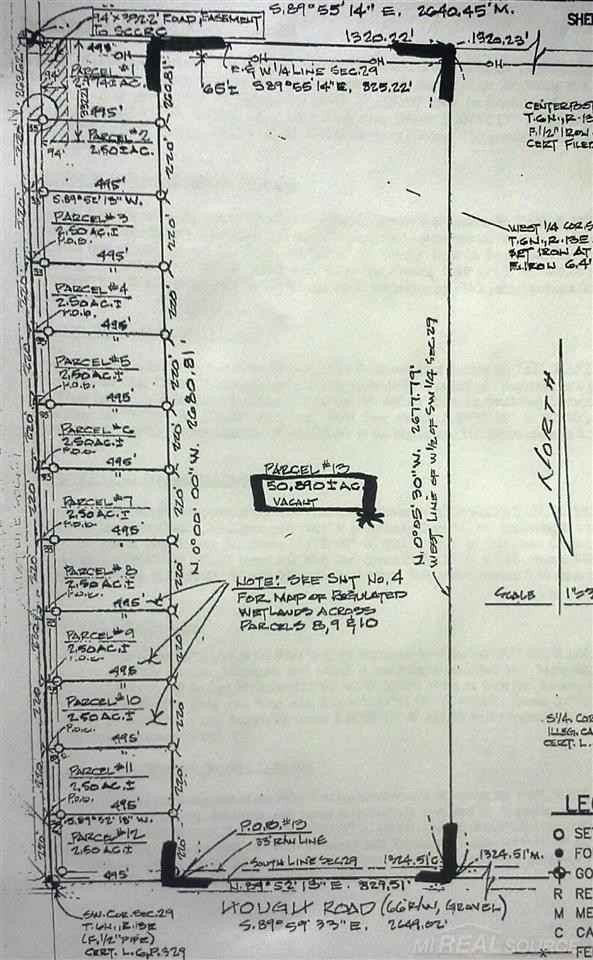 94'x392.2' ROAD EASEMENT
TO SCCRC
S.89°55'14"E. 2640.45'M.
1320.22'
1320.23'
495'
PARCEL #1
OH
OH
OH
E. & W 1/4 LINE SEC.29
65'± S.89°55'14"E. 825.22'
220.81'
94'
495'
PARCEL #2
2.50±AC.
94'
220'
495'
S.89°52'13"W.
PARCEL #3
2.50 AC.±
P.O.B.
220'
495'
"
PARCEL #4
2.50 AC.±
P.O.B.
220'
495'
"
PARCEL #5
2.50 AC.±
P.O.B.
220'
495'
"
PARCEL #6
2.50 AC.±
P.O.B.
220'
495'
"
PARCEL #7
2.50 AC.±
P.O.B.
220'
495'
"
PARCEL #8
2.50 AC.±
P.O.B.
220'
495'
"
PARCEL #9
2.50 AC.±
P.O.B.
220'
495'
"
PARCEL #10
2.50 AC.±
P.O.B.
220'
495'
"
PARCEL #11
2.50 AC.±
P.O.B.
220'
495'
S.89°52'13"W.
PARCEL #12
2.50 AC.±
220'
495'
N.0°00'00"W. 2680.81'
PARCEL #13
50.890±AC.
VACANT
NOTE: SEE SHT NO.4
FOR MAP OF REGULATED
WETLANDS ACROSS
PARCELS 8,9 & 10
N.0°05'30"W. 2677.79'
WEST LINE OF W1/2 OF SW1/4 SEC.29
P.O.B. #13
33' R/W LINE
SOUTH LINE SEC.29
1324.51'C.
1324.51'M.
N.89°52'13"E. 829.51'
HOUGH ROAD (66'R/W, GRAVEL)
S.89°59'33"E. 2649.02'
SW. COR. SEC.29
T.6N., R.13E
(F.1/2" PIPE)
CERT. L.6, P.329
SHE
CENTERPOST
T.6N., R.13
F.1/2" IRON
CERT FILED
WEST 1/4 COR. S
T.6N., R.13E
SET IRON AT
F.IRON 6.4'
NORTH
SCALE 1"=3
S1/4 COR
ILLEG. CA
CERT. L.
LEG
SET
FO
GO
R RE
M ME
C CA
FE
MI REAL SOURCE